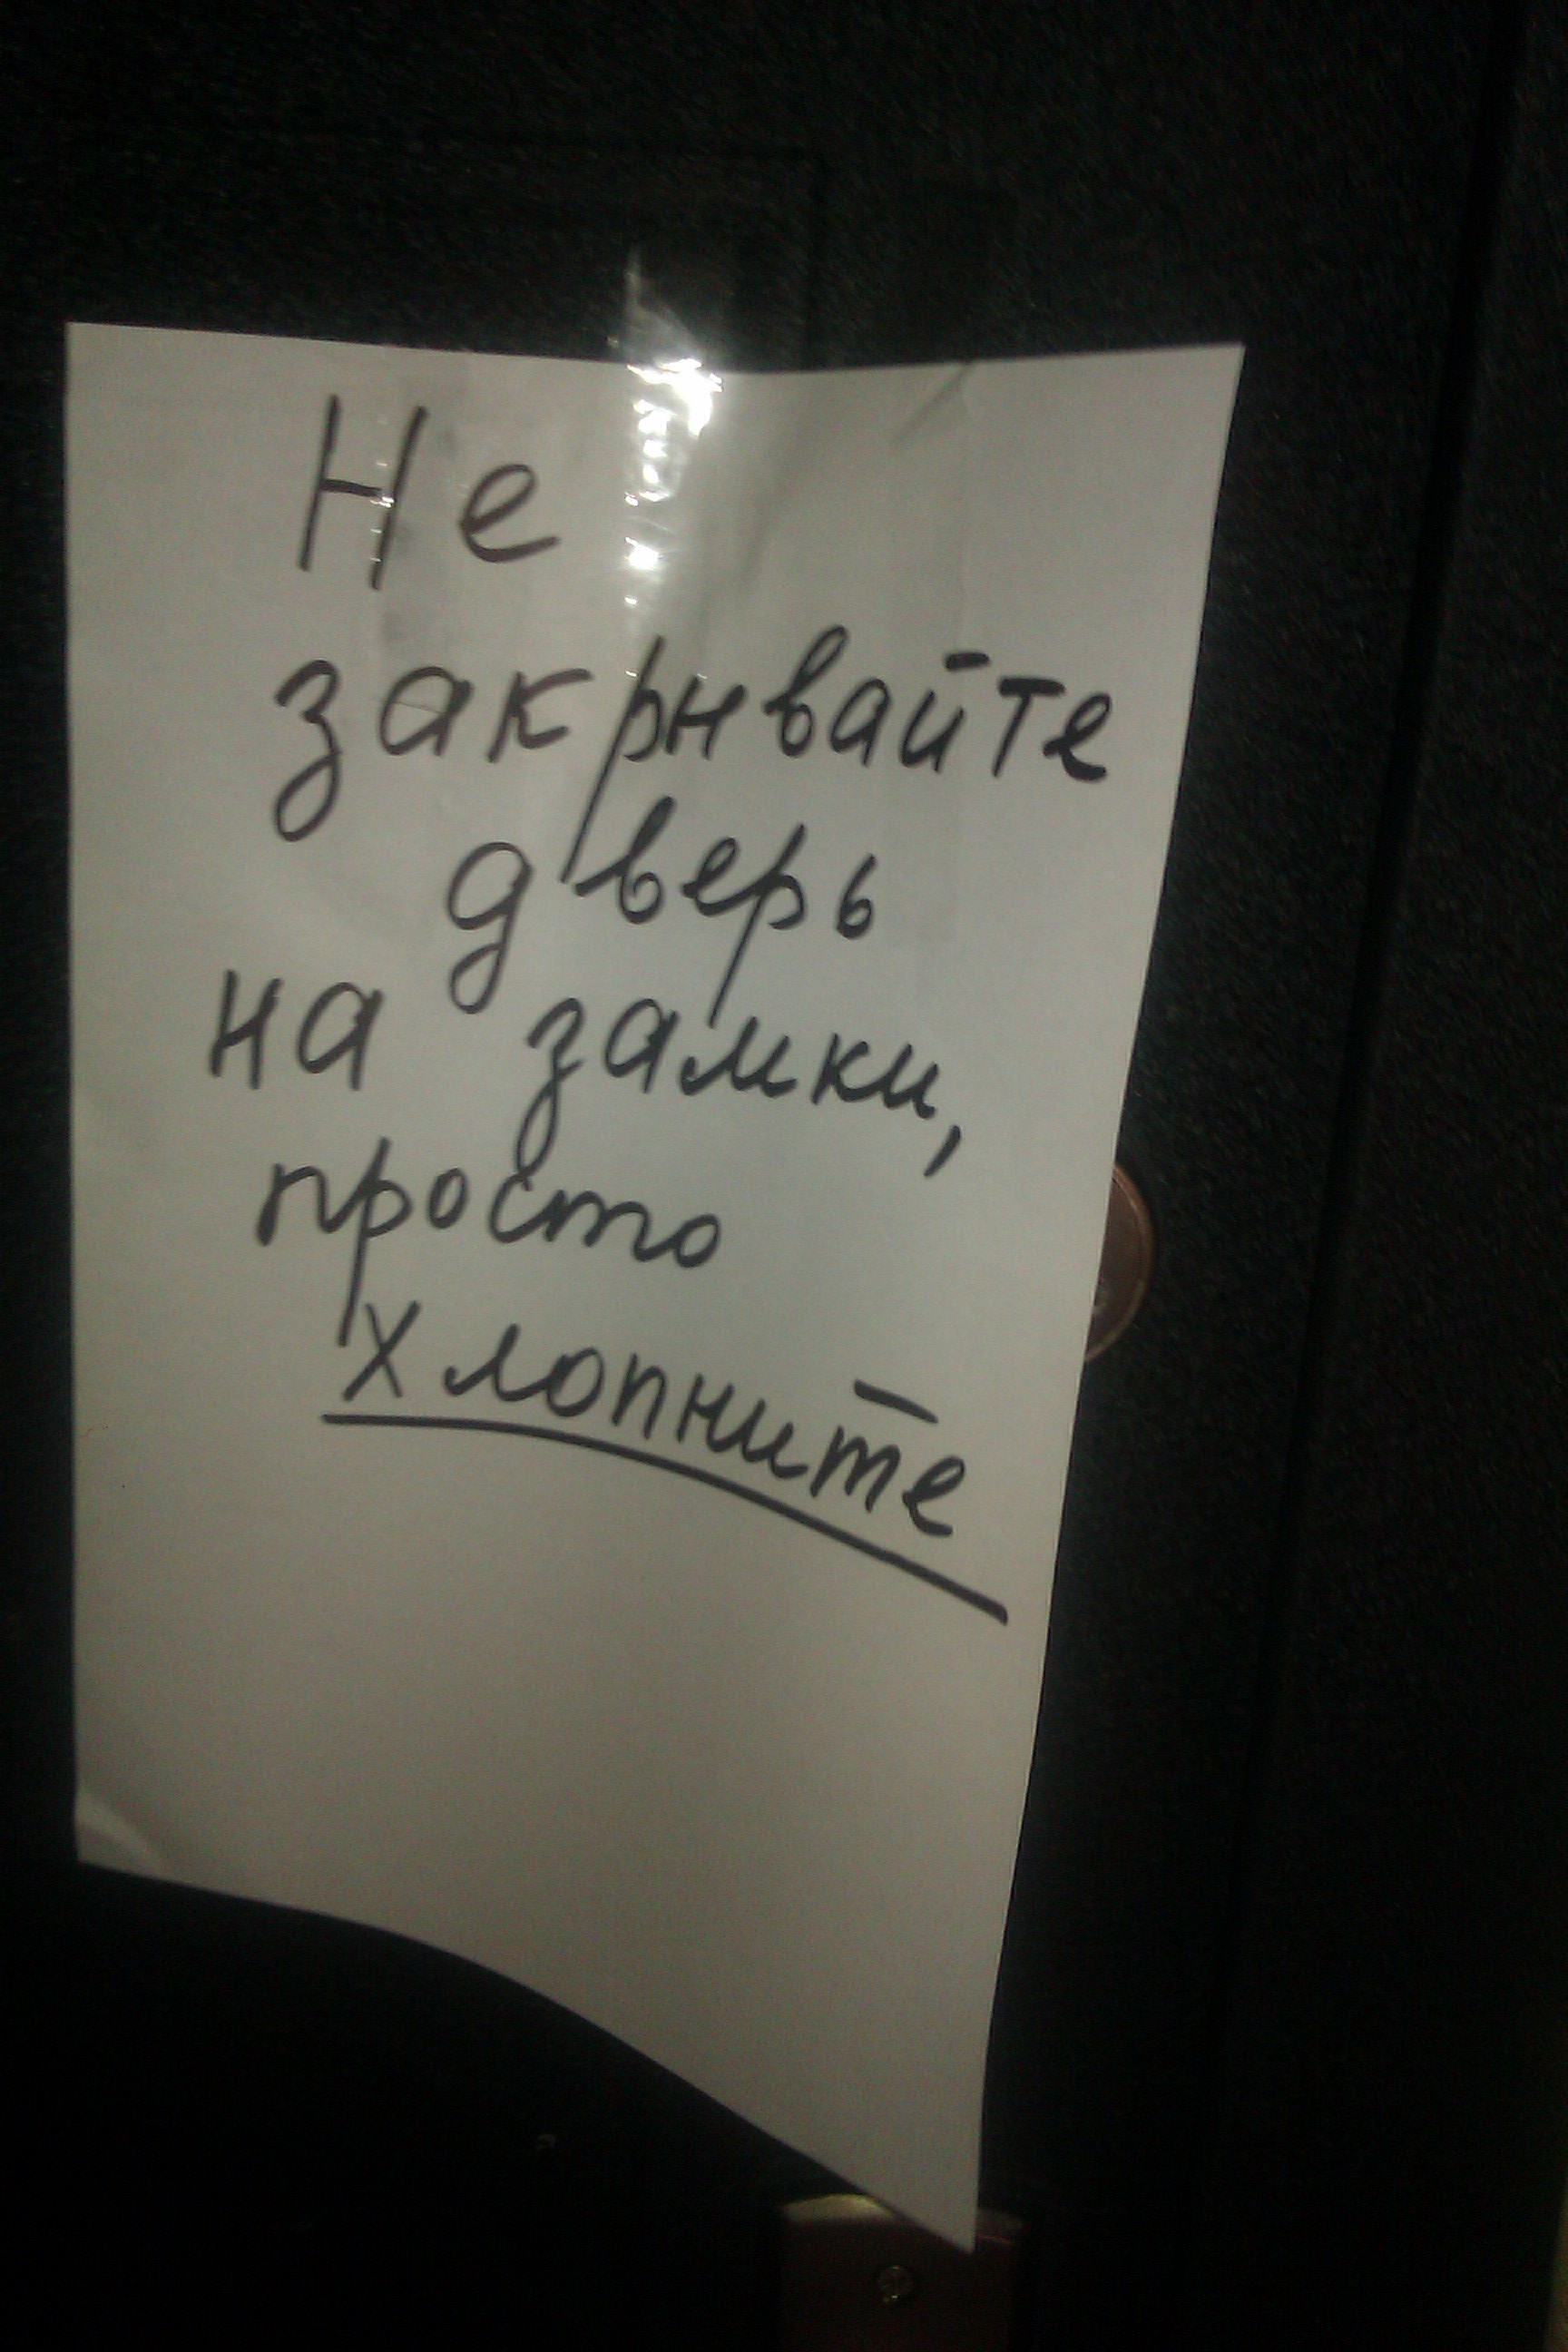 Не
закрывайте
дверь
на замки,
просто
хлопните